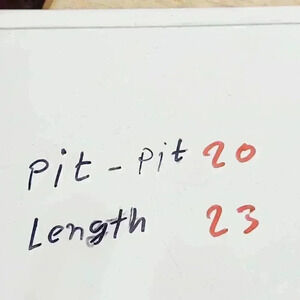 Pit - Pit 20
Length 23